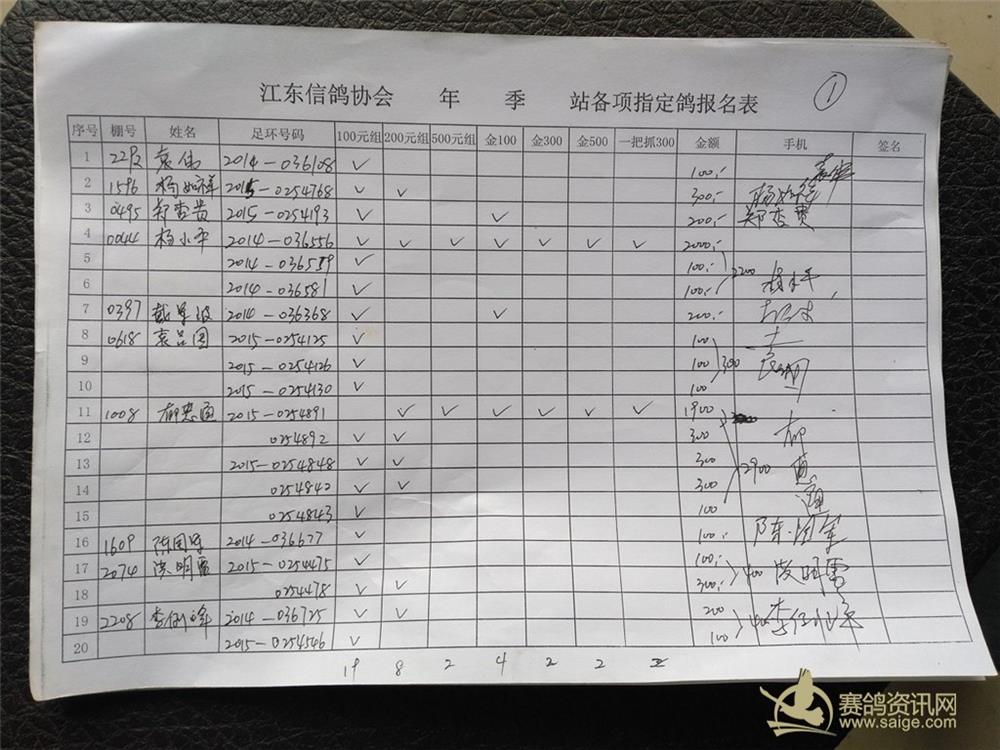 ①
江东信鸽协会 年 季 站各项指定鸽报名表
序号 棚号 姓名 足环号码 100元组 200元组 500元组 金100 金300 金500 一把抓300 金额 手机 签名
1 袁伟 2014-036108 ✓ 100.-
2 1596 杨如祥 2015-0254768 ✓ ✓ 300.- 杨如祥
3 0495 郑杏贵 2015-0254193 ✓ ✓ 200.- 郑杏贵
4 0044 杨小平 2014-036556 ✓ ✓ ✓ ✓ ✓ ✓ ✓ 2000.-
5 2014-036559 ✓ 100.- 2200
6 2014-036581 ✓ 100.- 杨小平
7 0397 2014-036368 ✓ ✓ 200.-
8 0618 袁吕国 2015-0254125 ✓ 100
9 2015-0254126 ✓ 100 300
10 2015-0254130 ✓ 100
11 1008 郁忠通 2015-0254891 ✓ ✓ ✓ ✓ ✓ ✓ 1900
12 0254892 ✓ ✓ 300 郁
13 2015-0254848 ✓ ✓ 300 2900
14 0254842 ✓ ✓ 300 通
15 0254843 ✓ 100
16 1609 陈国军 2014-036677 ✓ 100.- 陈国军
17 2074 洪明雷 2015-0254475 ✓ 100.- 400
18 0254478 ✓ ✓ 300.-
19 2208 2014-036725 ✓ ✓ 200 400
20 2015-0254546 ✓ 100
19 8 2 4 2 2 2
赛鸽资讯网
www.saige.com